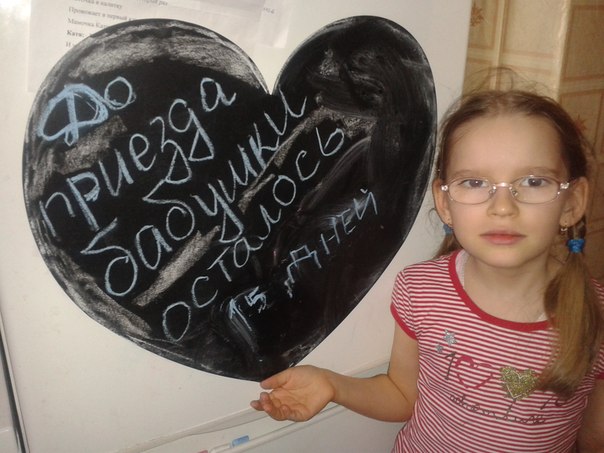 Провожает в первый
Мамочка
Катя:
До
приезда
бабушки
осталось
15 дней